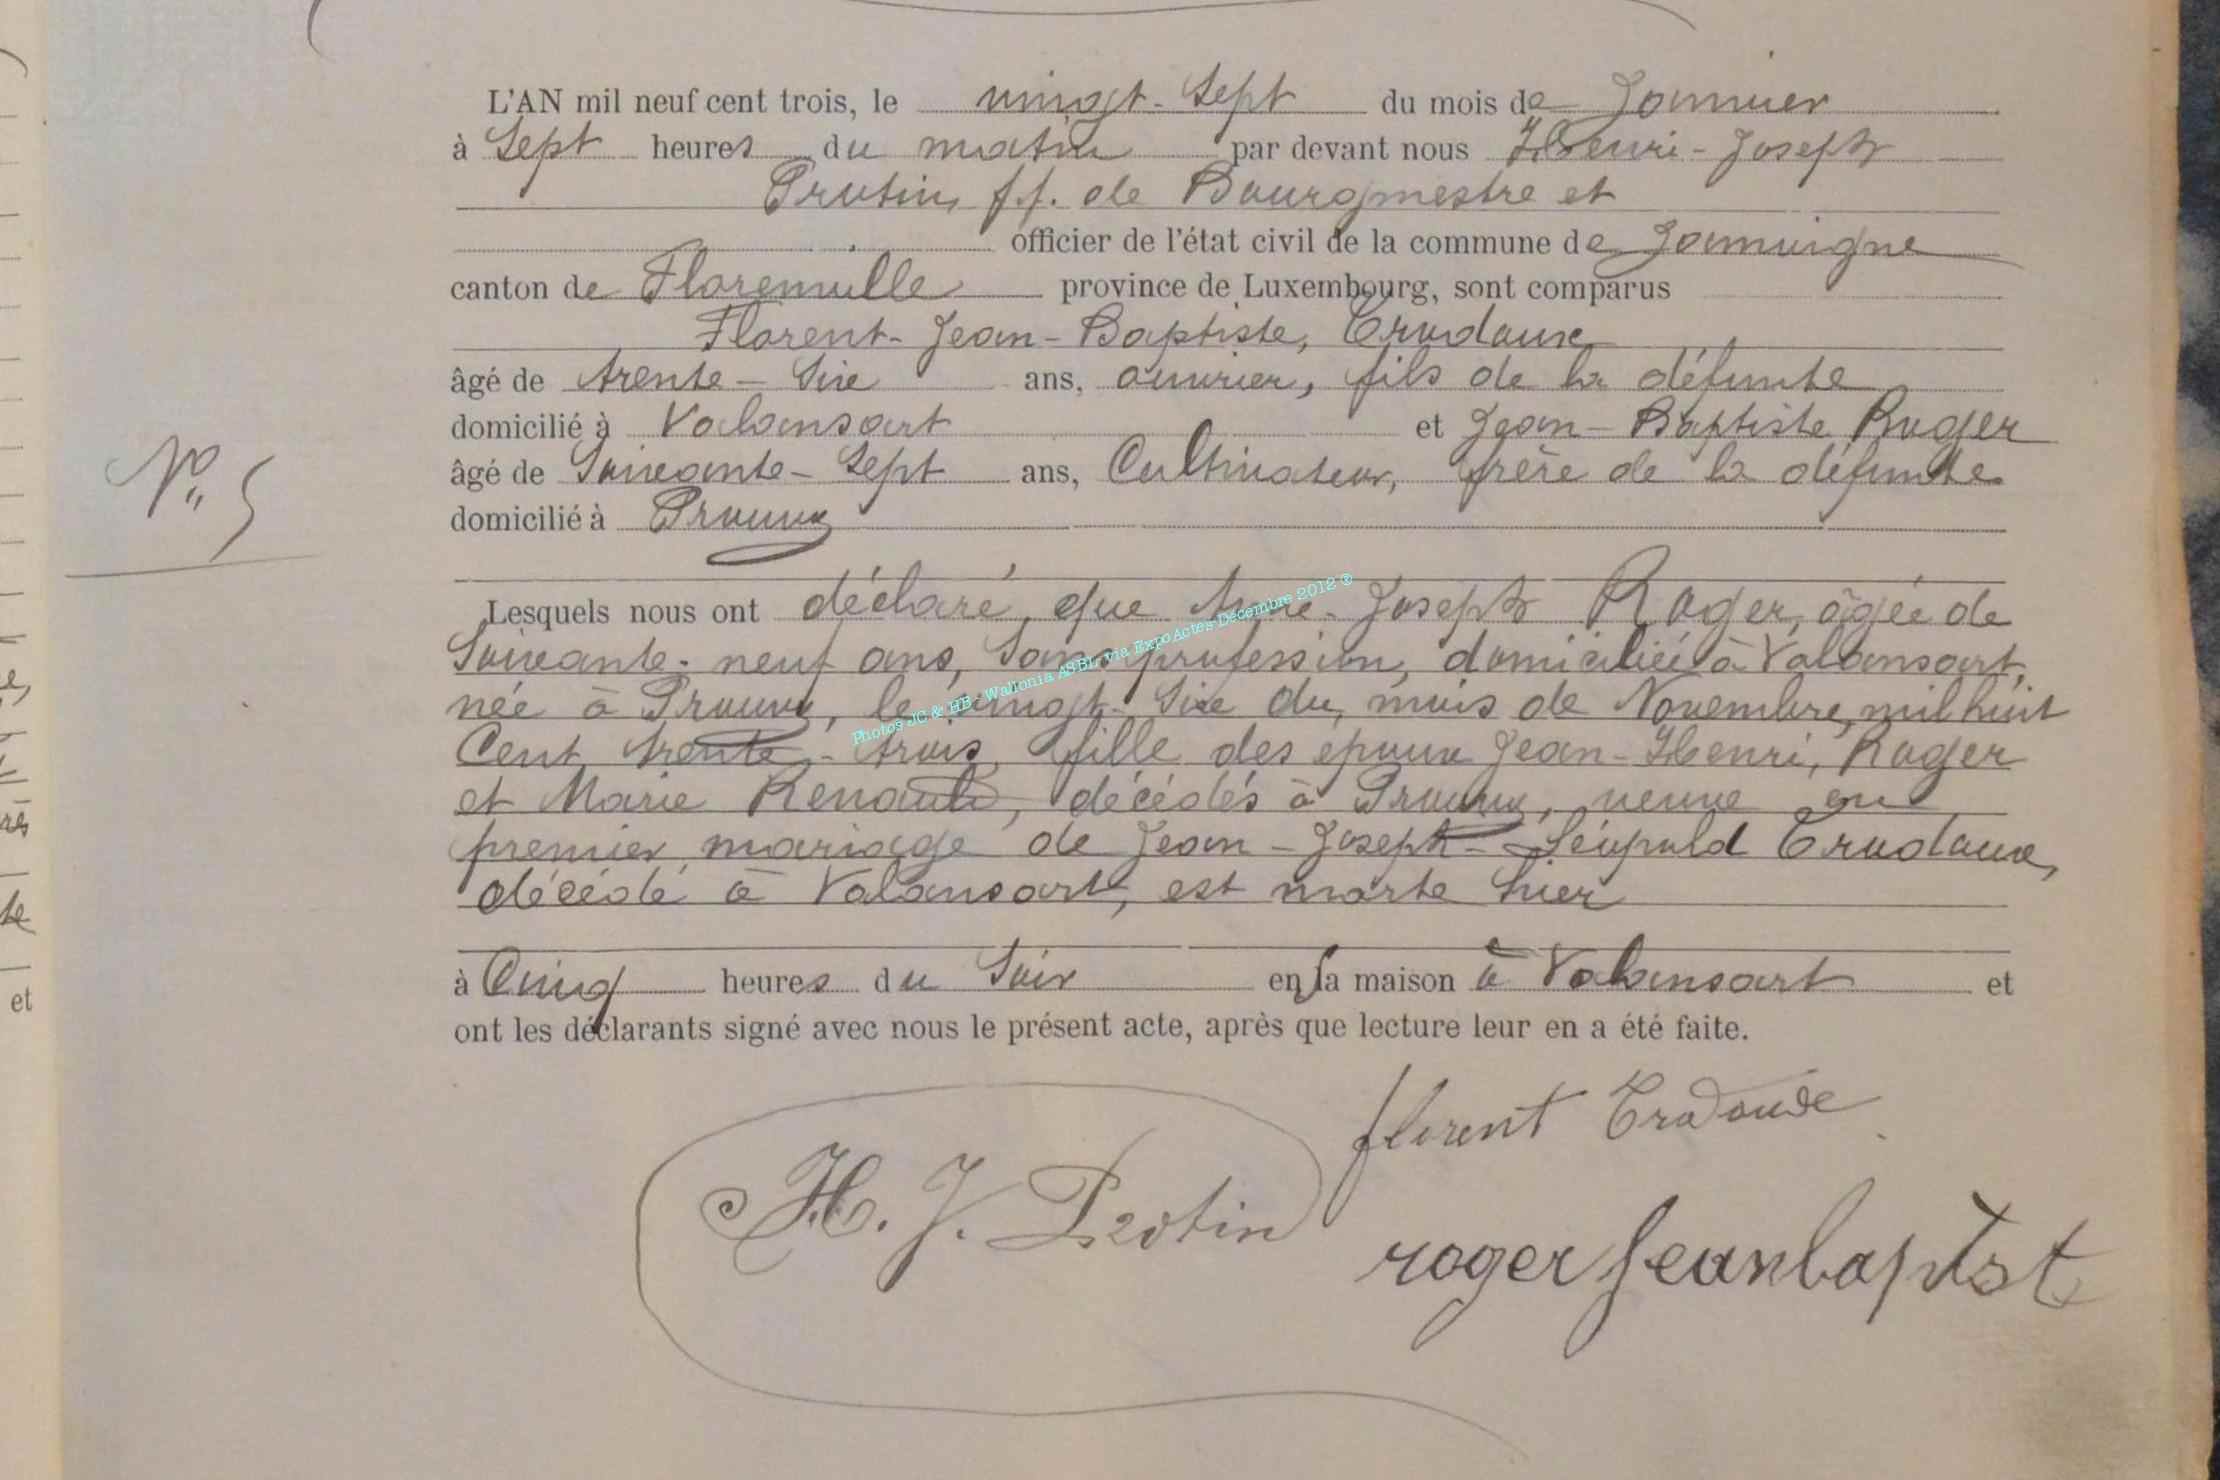 L'AN mil neuf cent trois, le vingt-Sept du mois de Janvier
à Sept heures du matin par devant nous Henri-Joseph
Protin, f.f. de Bourgmestre et
officier de l'état civil de la commune de Jamoigne
canton de Florenville province de Luxembourg, sont comparus
Florent-Jean-Baptiste, Crodaux
âgé de trente-Six ans, ouvrier, fils de la défunte
domicilié à Valansart et Jean-Baptiste Roger
âgé de Soixante-Sept ans, Cultivateur, frère de la défunte
domicilié à Prouvy
N° 5
Lesquels nous ont déclaré, que Anne-Joseph Roger, âgée de
Soixante-neuf ans, Sans profession, domiciliée à Valansart,
née à Prouvy, le vingt-Six du mois de Novembre, mil huit
Cent trente-trois, fille des époux Jean-Henri, Roger
et Marie Renauld, décédés à Prouvy, veuve en
premier mariage de Jean-Joseph-Léopold Crodaux,
décédé à Valansart, est morte hier
à Cinq heures du Soir en sa maison à Valansart et
ont les déclarants signé avec nous le présent acte, après que lecture leur en a été faite.
florent
H. J. Protin
roger jeanbaptist
Photos JC & HB - Wallonia ASBL via ExpoActes Décembre 2012 ®